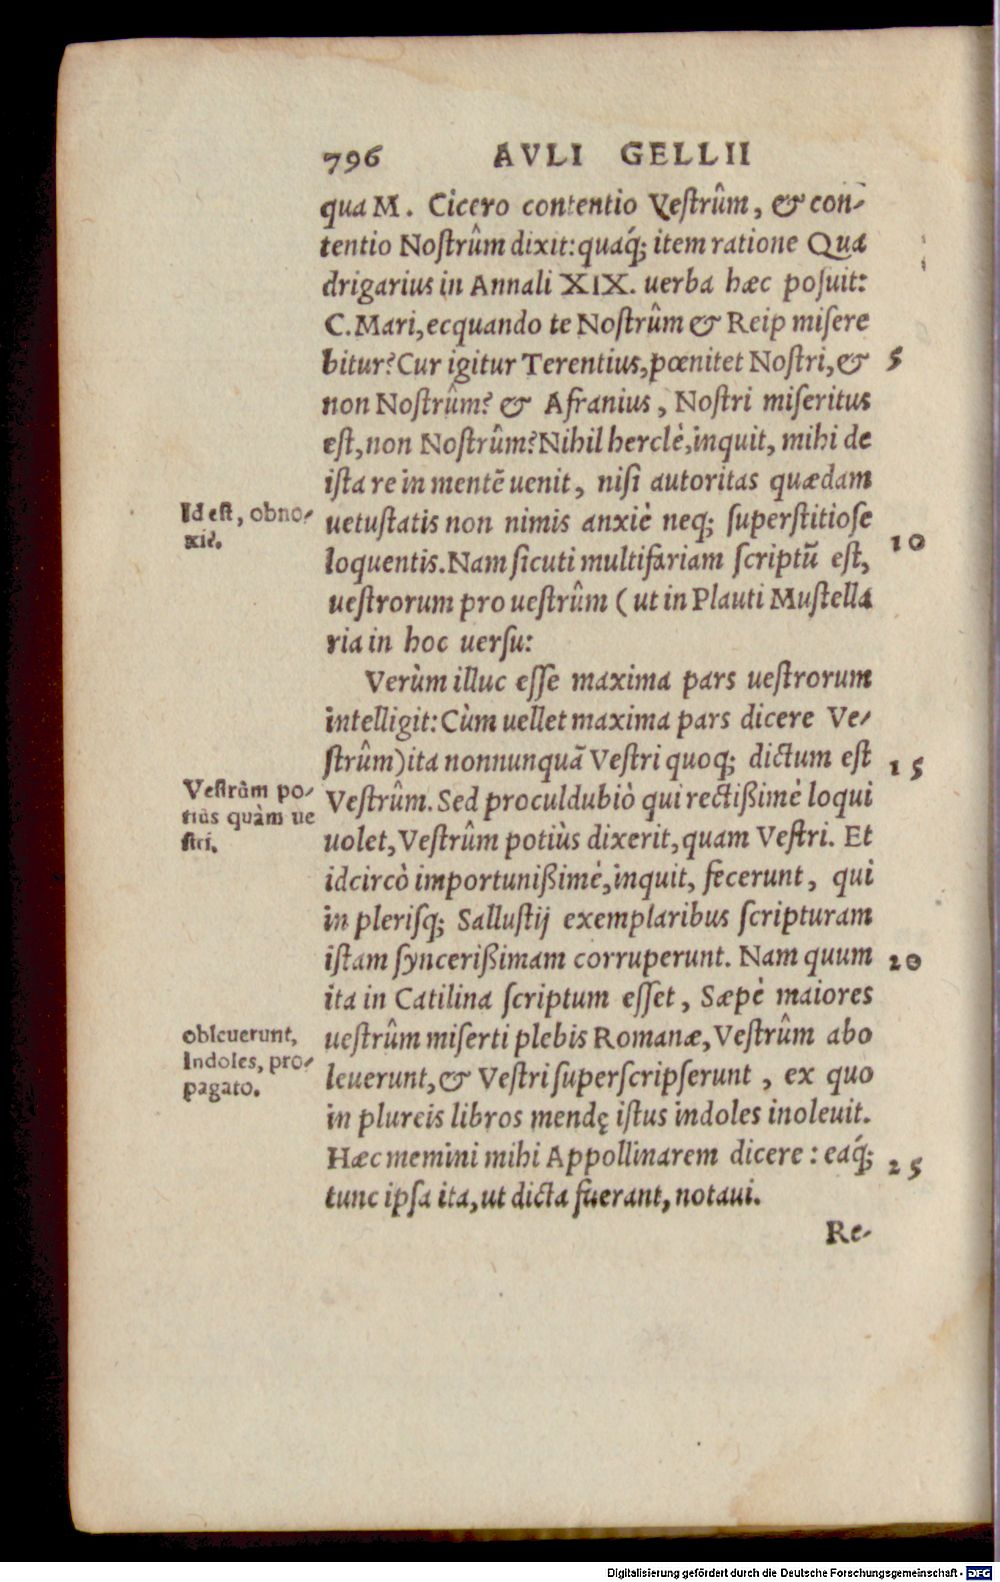 796 AVLI GELLII
qua M. Cicero contentio Veſtrûm, & con-
tentio Noſtrûm dixit: quaq́; item ratione Qua
drigarius in Annali XIX. uerba hæc poſuit:
C. Mari, ecquando te Noſtrûm & Reip miſere
bitur? Cur igitur Terentius, pœnitet Noſtri, & 5
non Noſtrûm? & Afranius, Noſtri miſeritus
eſt, non Noſtrûm? Nihil herclè, inquit, mihi de
iſta re in mentẽ uenit, niſi autoritas quædam
Id eſt, obno-
xiè.
uetuſtatis non nimis anxiè neq; ſuperſtitioſe
loquentis. Nam ſicuti multifariam ſcriptũ eſt, 10
ueſtrorum pro ueſtrûm (ut in Plauti Muſtella
ria in hoc uerſu:
Verùm illuc eſſe maxima pars ueſtrorum
intelligit: Cùm uellet maxima pars dicere Ve-
ſtrûm) ita nonnunquã Veſtri quoq; dictum eſt 15
Veſtrûm po-
tiùs quàm ue
ſtri.
Veſtrûm. Sed proculdubiò qui rectißimè loqui
uolet, Veſtrûm potiùs dixerit, quam Veſtri. Et
idcircò importunißimè, inquit, fecerunt, qui
in pleriſq; Salluſtij exemplaribus ſcripturam
iſtam ſyncerißimam corruperunt. Nam quum 20
ita in Catilina ſcriptum eſſet, Sæpè maiores
obleuerunt,
Indoles, pro-
pagato.
ueſtrûm miſerti plebis Romanæ, Veſtrûm abo
leuerunt, & Veſtri ſuperſcripſerunt, ex quo
in plureis libros mendę iſtus indoles inoleuit.
Hæc memini mihi Appollinarem dicere: eaq́; 25
tunc ipſa ita, ut dicta fuerant, notaui.
Re-
Digitalisierung gefördert durch die Deutsche Forschungsgemeinschaft - DFG